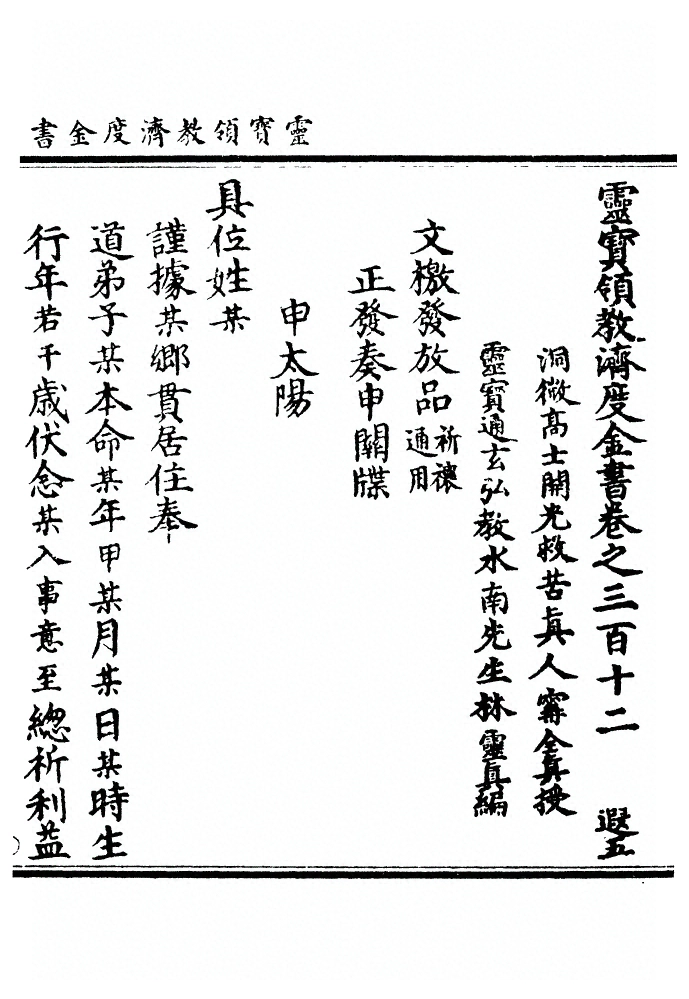 靈寶領教濟度金書
靈寶領教濟度金書卷之三百十二 遐五
洞微高士開光救苦眞人寗全眞授
靈寶通玄弘教水南先生林靈眞編
文檄發放品祈禳通用
正發奏申關牒
申太陽
具位姓某
謹據某鄉貫居住奉
道弟子某本命某年甲某月某日某時生
行年若干歲伏念某入事意至總祈利益